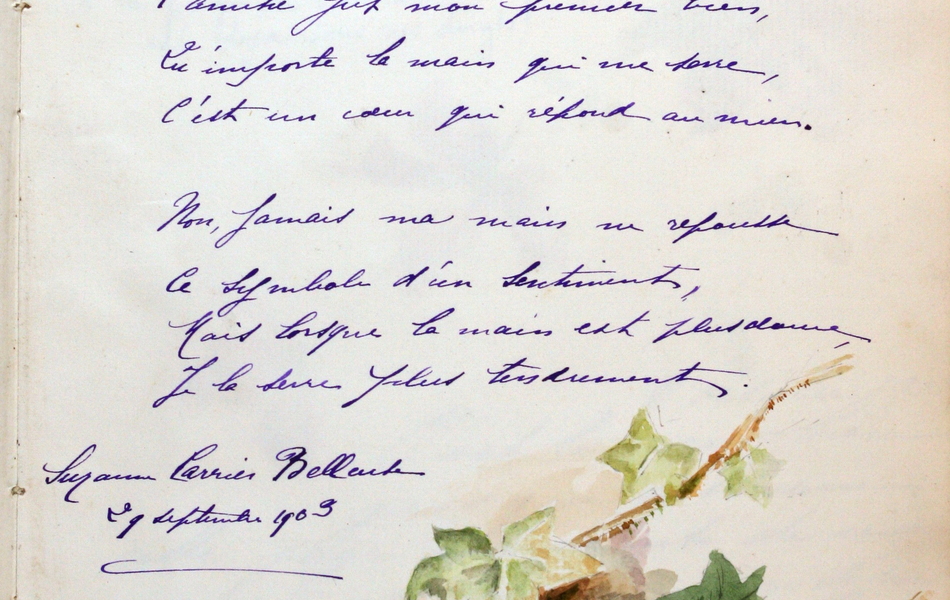 L'amitié fut mon premier bien,
Qu'importe la main qui me serre,
C'est un cœur qui répond au mien.
Non, jamais ma main ne repousse
Ce symbole d'un sentiment,
Mais lorsque la main est plus douce,
Je la serre plus tendrement.
Suzanne Carrier Belleuse
29 septembre 1903